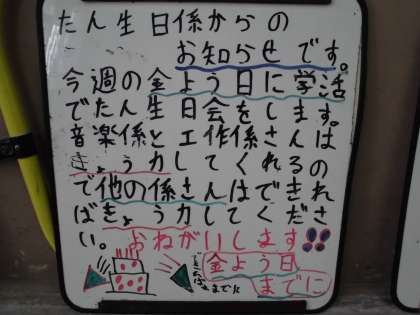 たん生日係からの
お知らせです。
今週の金よう日に学活
でたん生日会をします。
音楽係と工作係さんは
きょう力してくれるの
で他の係さんはできれ
ばきょう力してくださ
い。おねがいします!!
金よう日
までに